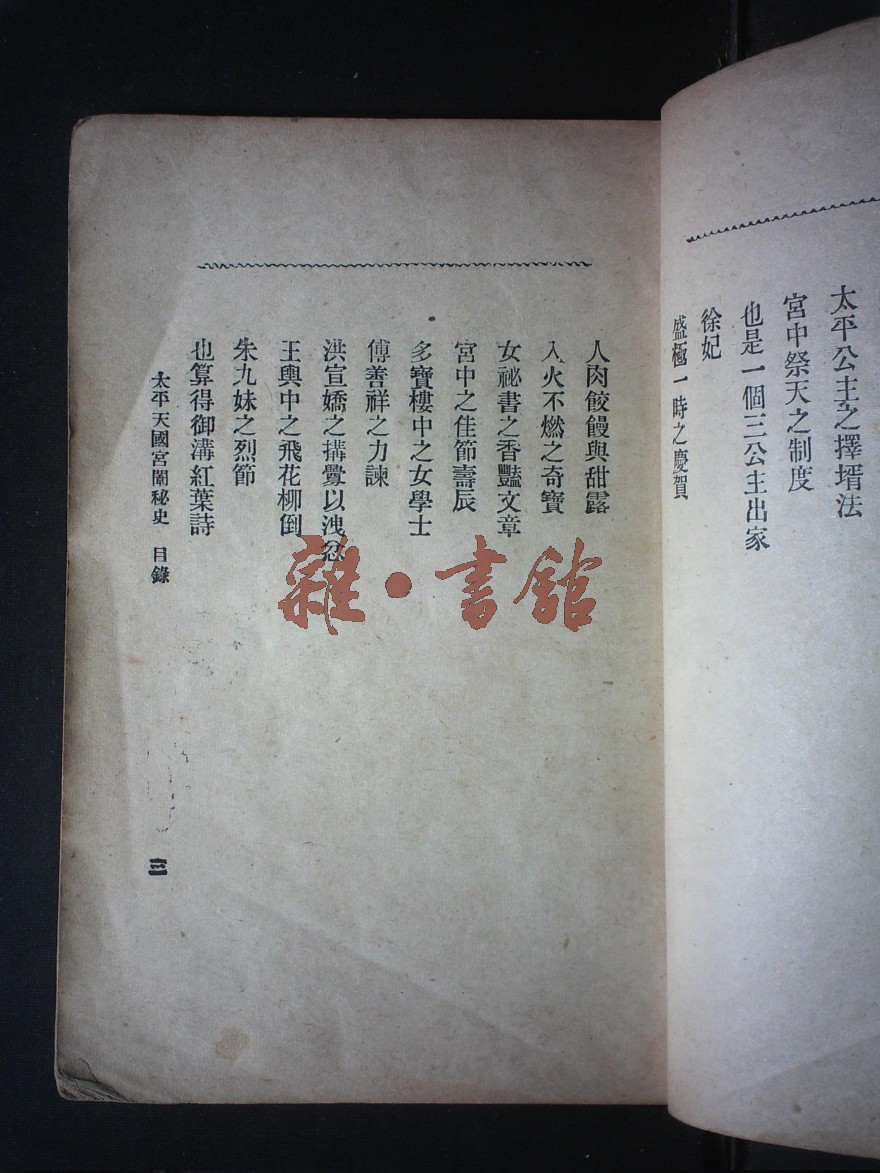 太平公主之擇壻法
宮中祭天之制度
也是一個三公主出家
徐妃
盛極一時之慶賀
人肉餃饅與甜露
入火不燃之奇寶
女祕書之香豔文章
宮中之佳節壽辰
多寶樓中之女學士
傅善祥之力諫
洪宣嬌之搆釁以洩忿
王輿中之飛花柳倒
朱九妹之烈節
也算得御溝紅葉詩
太平天國宮闈秘史 目錄
三
雜·書館